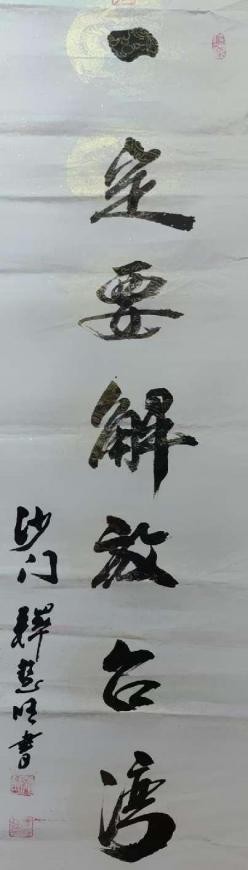 一定要解放台湾
沙门释慧旺书